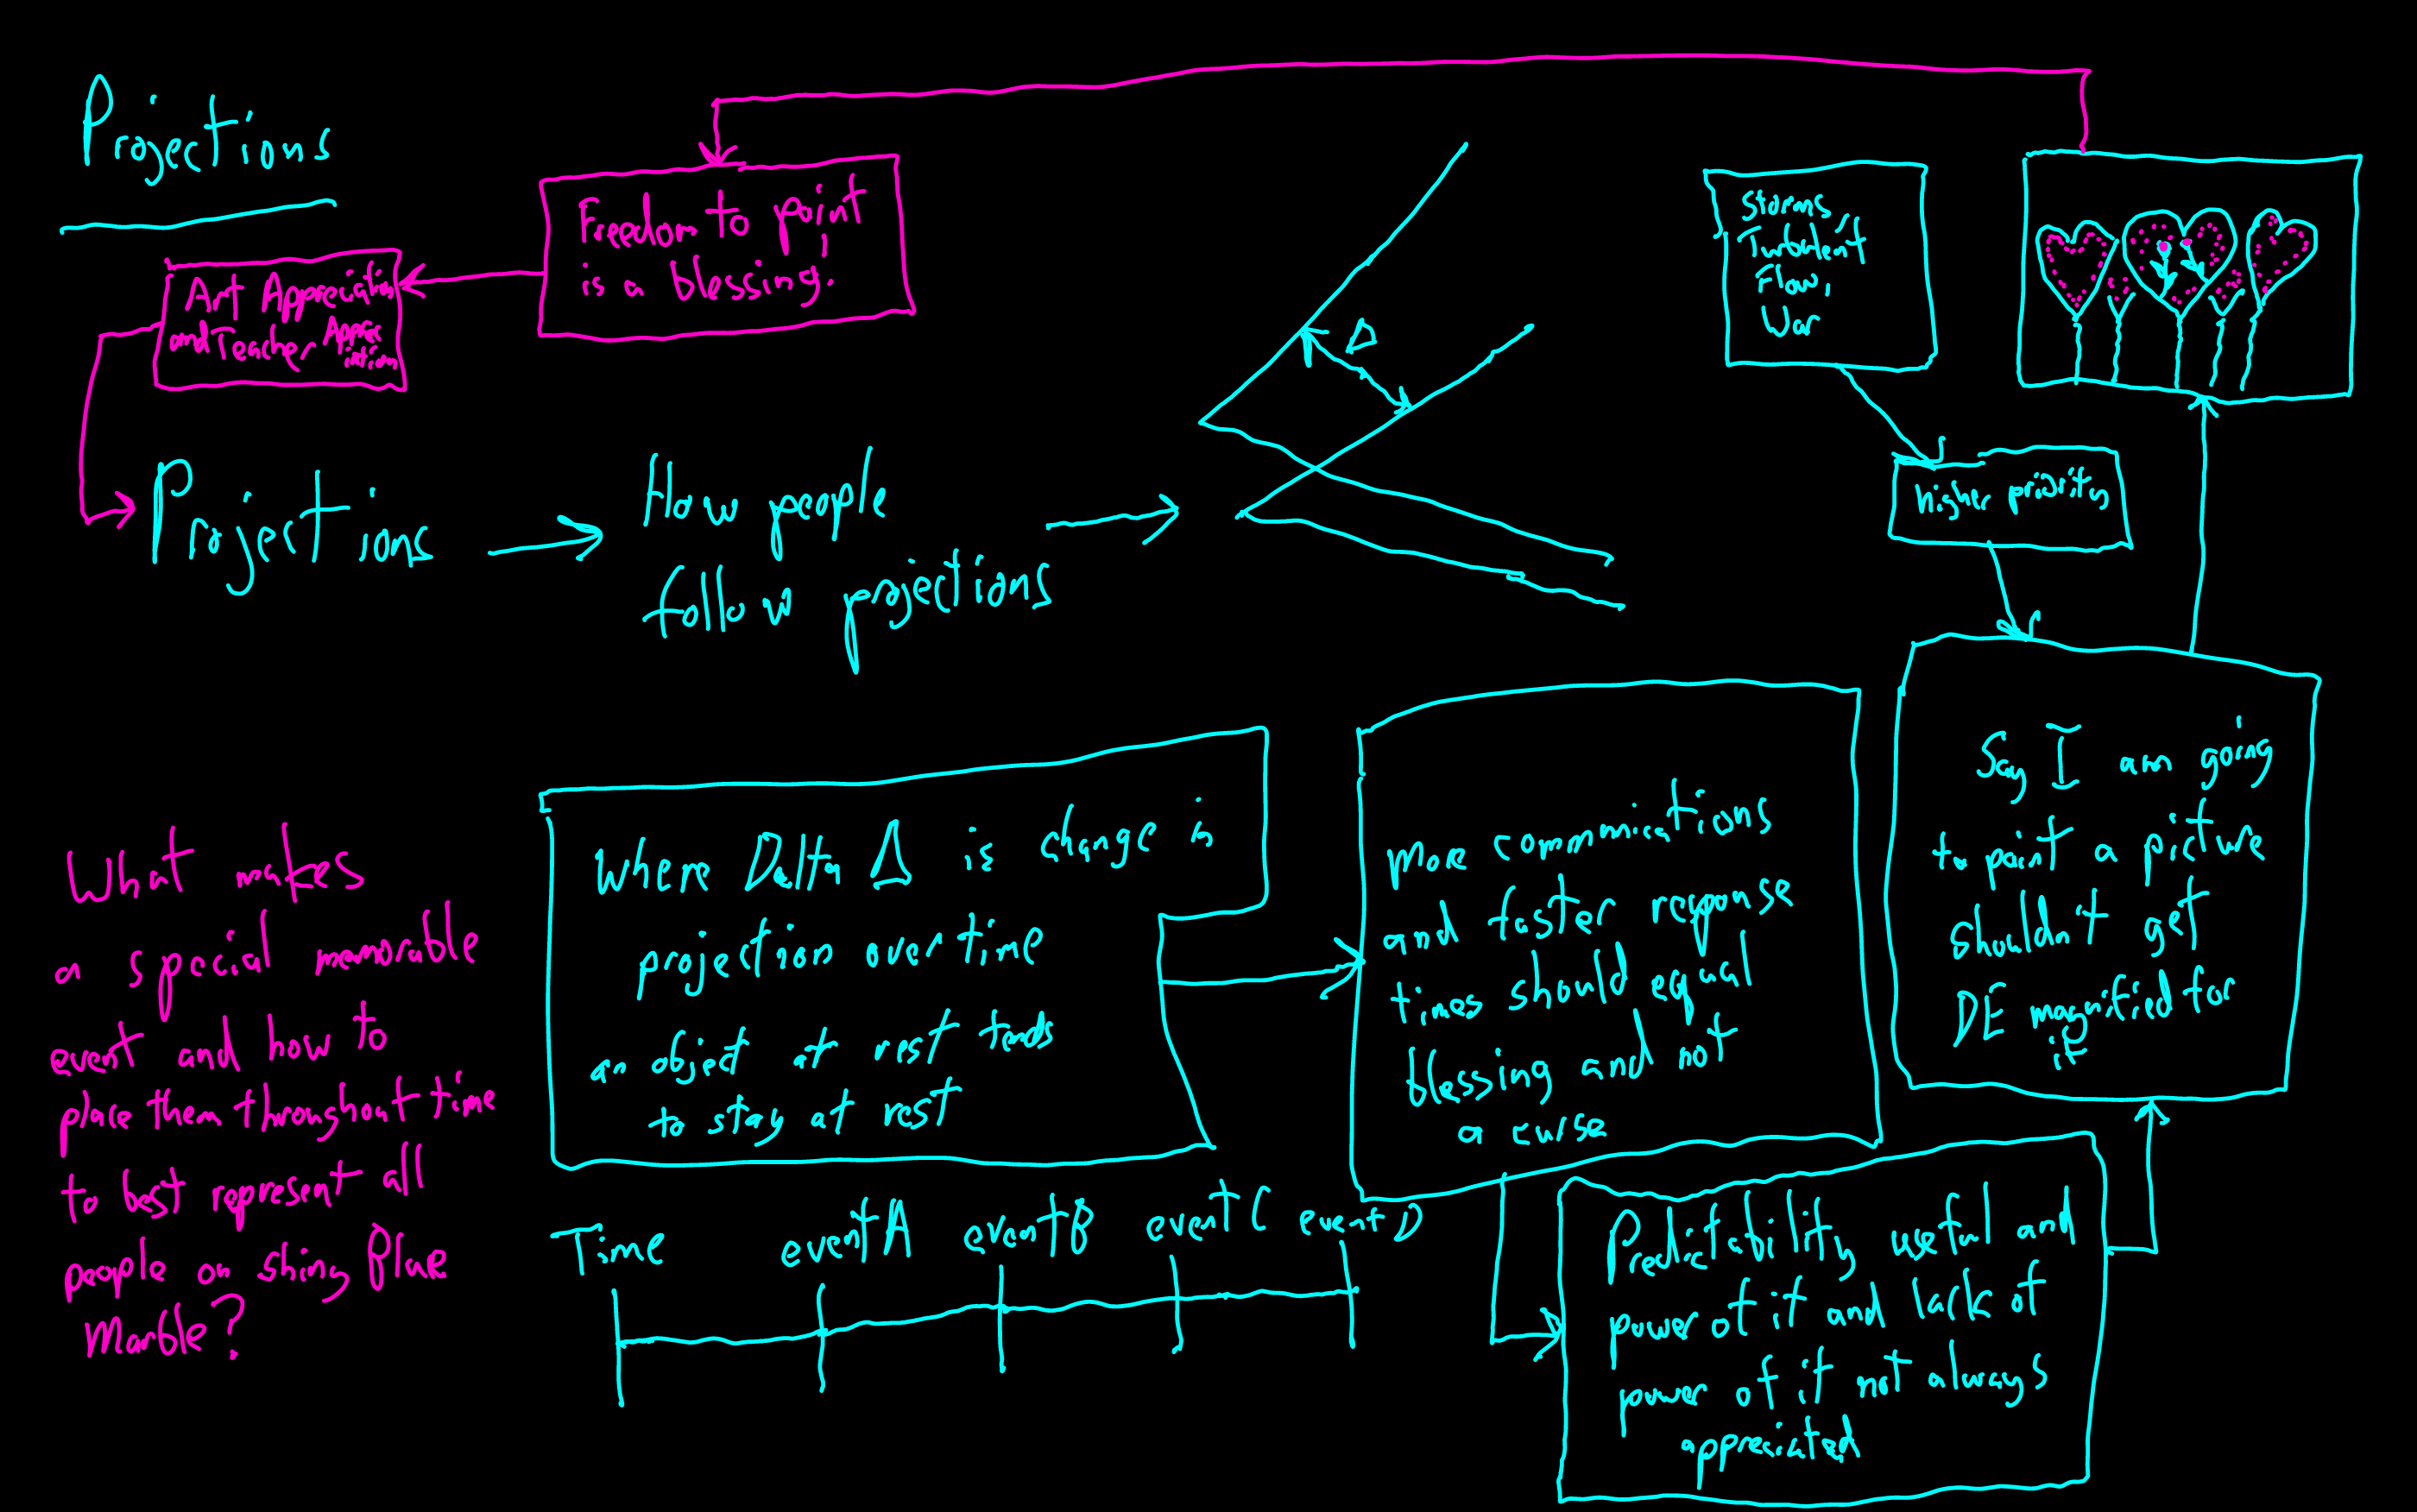 Projections
Freedom to paint
is a blessing.
Art Appreciation
and Teacher Apprec
iation
Storms
Turbulent
Flow,
War
higher priority
Projections
How people
follow projections
Δ
Say I am going
to paint a picture
shouldn't get
DE magnified for
it
Where Delta Δ is change in
projection over time
an object at rest tends
to stay at rest
more commnications
and faster response
times should equal
blessing and not
a curse
What makes
a special memorable
event and how to
place them throughout time
to best represent all
people on shiny Blue
Marble?
Time eventA eventB eventC event D
Predictability useful and
power of it and lack of
power of it not always
appreciated